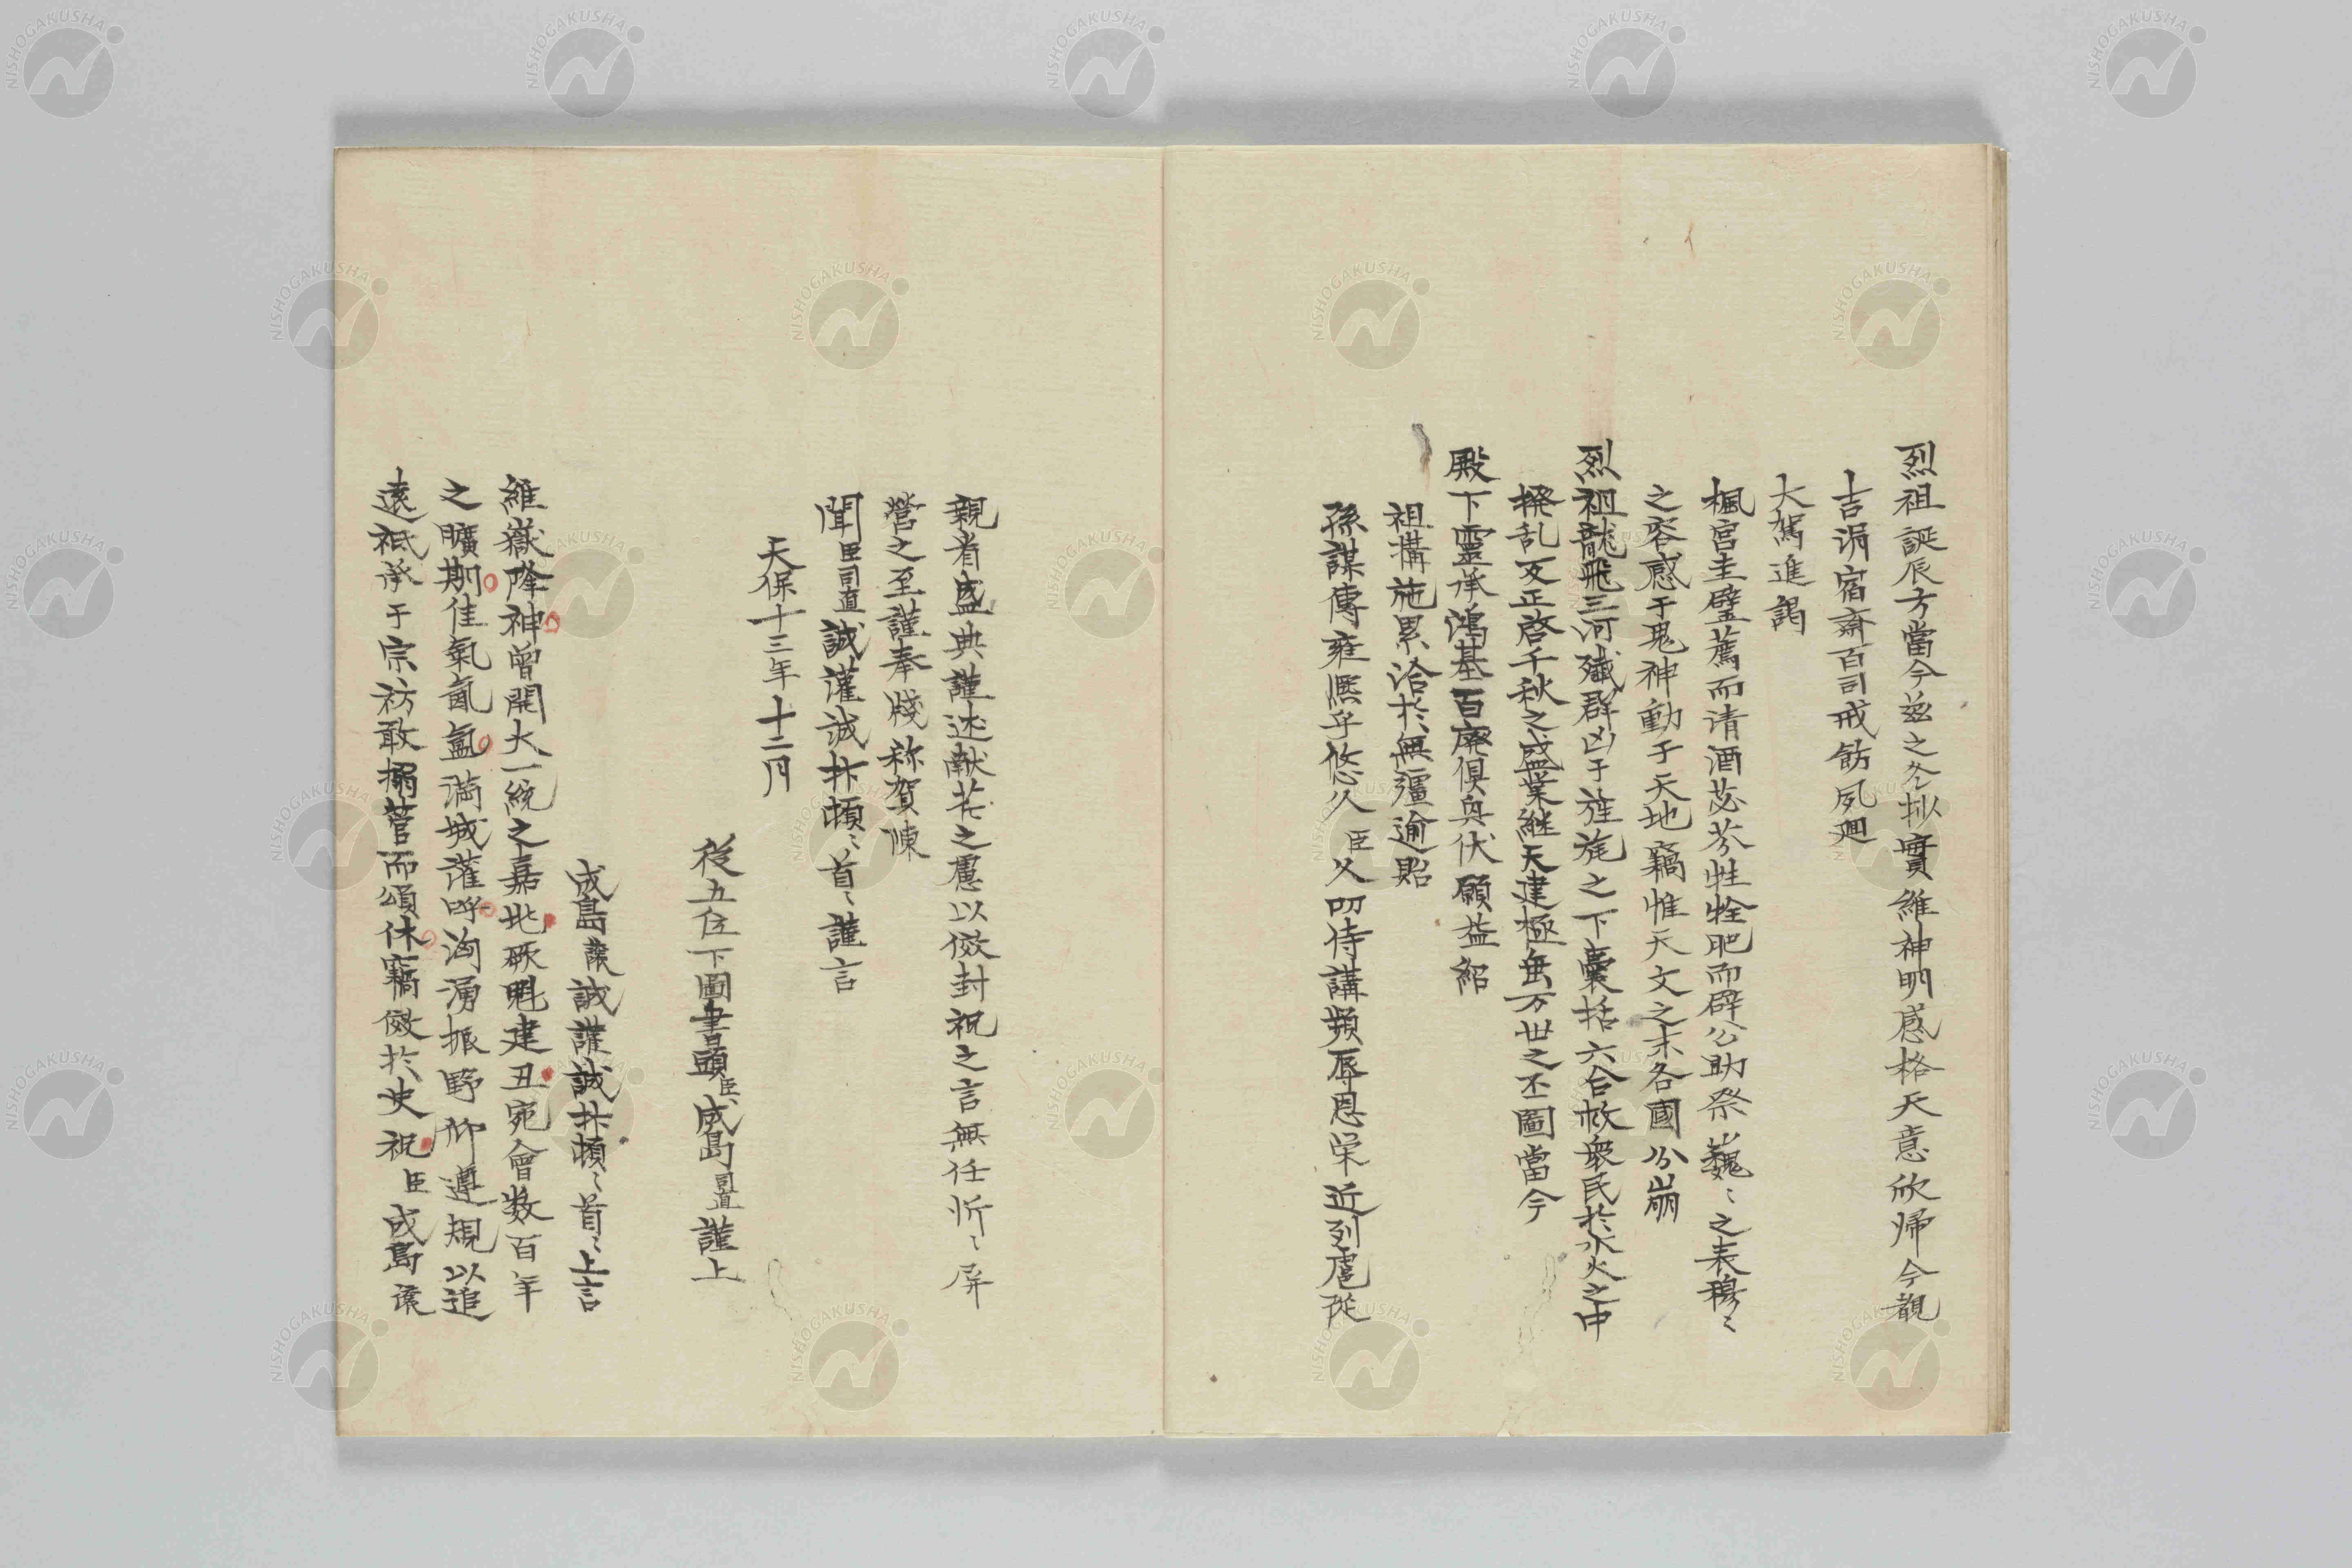 烈祖誕辰方當今茲之冬拟實維神明感格天意欣帰今覩
吉涓宿齋百司戒飭夙廻
大駕進謁
楓宮圭璧薦而清酒苾芬牲牷肥而辟公助祭巍〻之表穆〻
之容感于鬼神動于天地竊惟天文之末各國分崩
烈祖龍飛三河殲群凶于旌旄之下囊括六合救衆民於水火之中
撥乱反正啓千秋之盛業継天建極垂万世之丕圖當今
殿下霊承鴻基百廢俱興伏願益紹
祖搆施累洽於無疆逾貽
孫謀傳雍熈乎悠久臣久叨侍講頻辱恩栄近列扈從
親者盛典謹述献芹之慮以倣封祝之言無任忻〻屏
營之至謹奉牋称賀陳
聞臣司直誠謹誠抃頓〻首〻謹言
天保十三年十二月
從五位下圖書頭臣成島司直謹上
成島譲誠謹誠抃頓〻首〻上言
維嶽降神曽開大一統之嘉兆厥魁建丑宛會数百年
之曠期佳氣氤氳満城灌呼洶湧振野仰遵規以追
遠祗承于宗祊敢搦菅而頌休竊倣於史祝臣成島譲
NISHOGAKUSHA